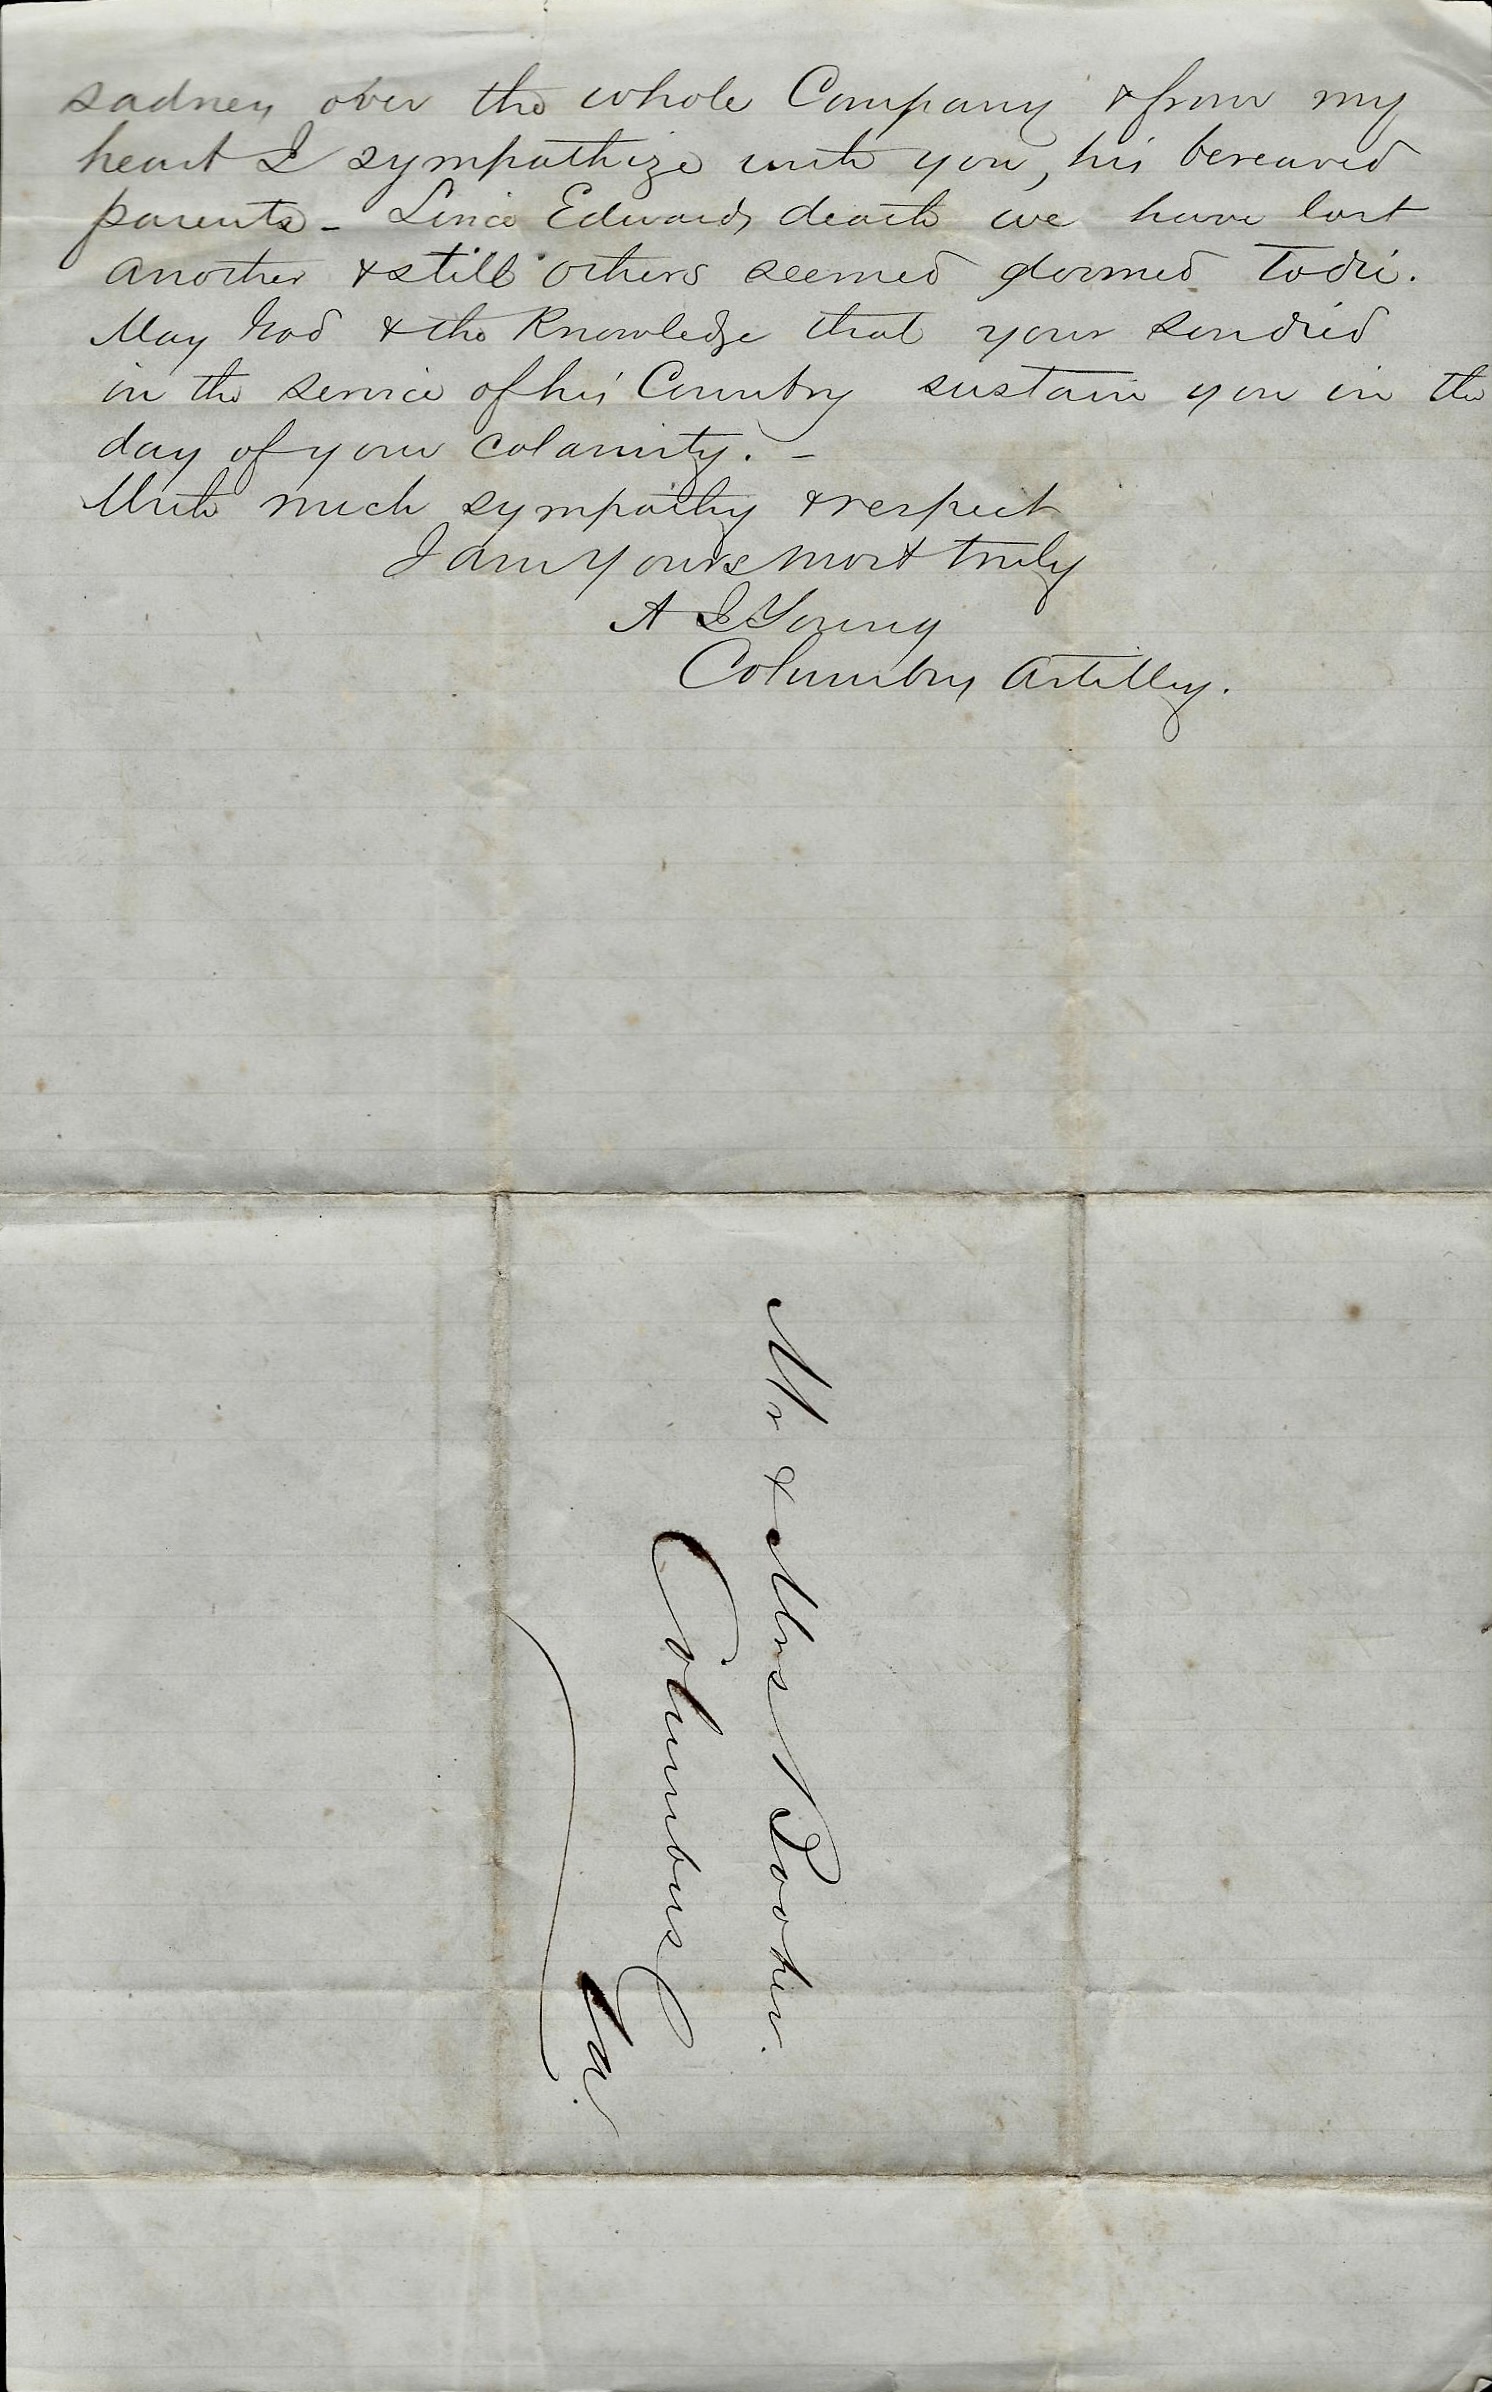 sadness over the whole Company & from my
heart I sympathize with you, his bereaved
parents - Since Edwards death we have lost
another & still others seemed doomed to die.
May God & the Knowledge that your son died
in the service of his Country sustain you in the
day of your calamity. -
With much sympathy & respect
I am Yours most truly
A I Young
Columbus Artillery.
Mr & Mrs Booher.
Columbus
Ga.